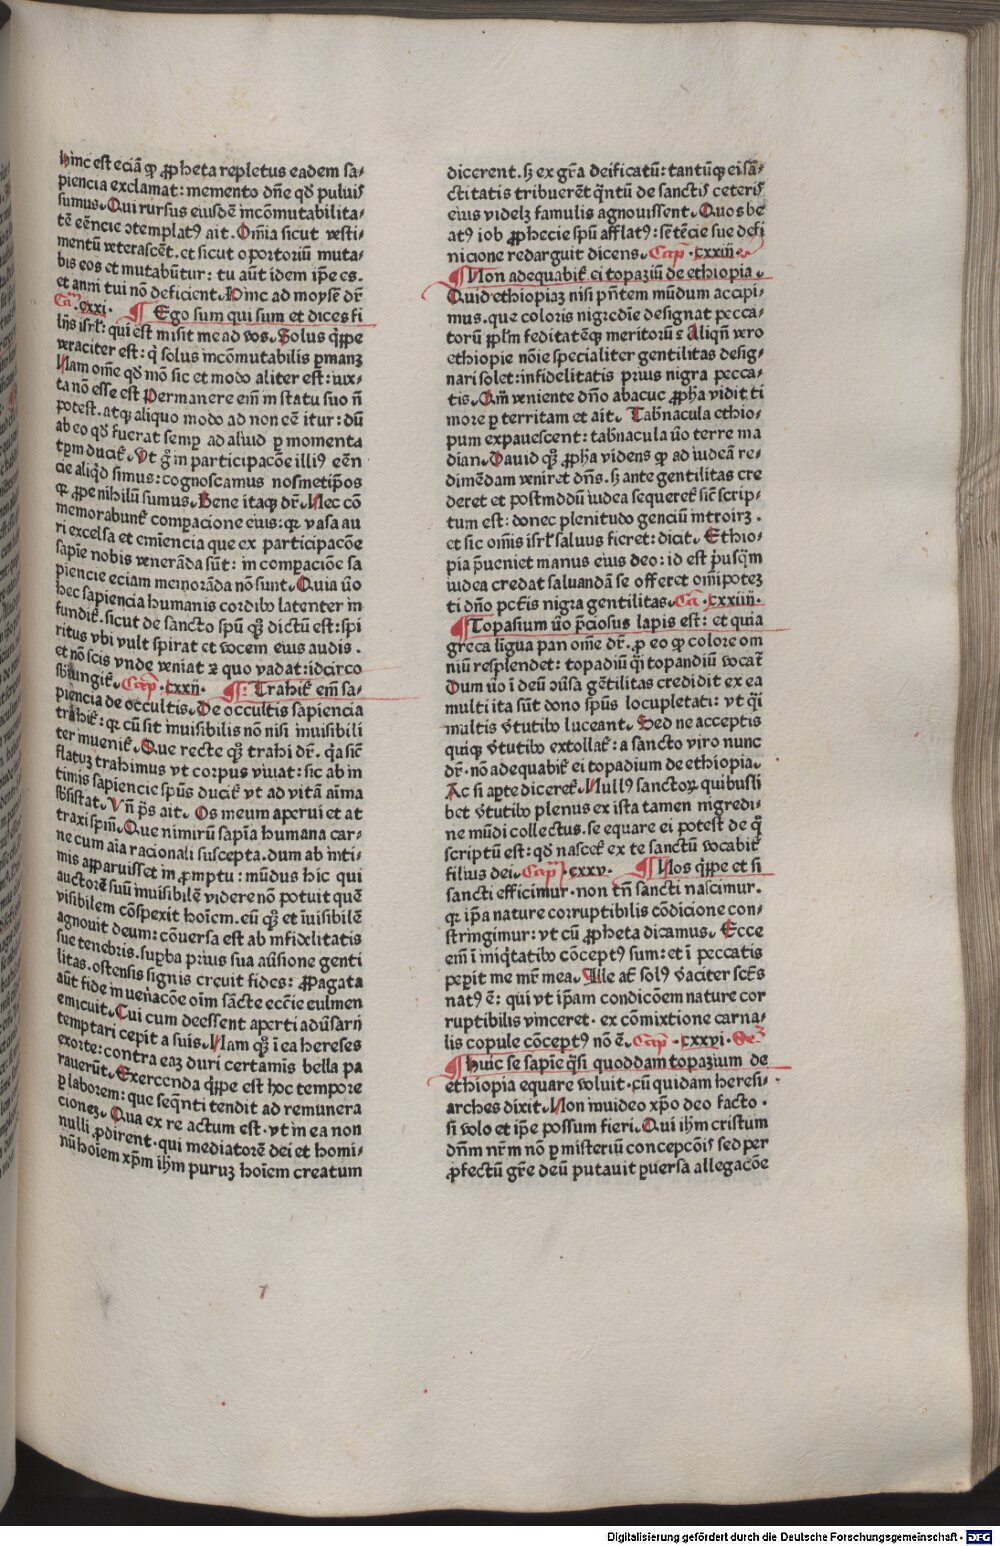 hinc est eciā ꝙ ꝓpheta repletus eadem sa⸗
piencia exclamat: memento dn̄e qd̄ puluis
sumus. Qui rursus eiusdē incōmutabilita⸗
tē eēncie ɔtemplatꝰ ait. Om̄ia sicut vesti⸗
mentū veterascēt. et sicut oportoriū muta⸗
bis eos et mutabūtur: tu aūt idem ip̄e es.
et anni tui nō deficient. Hinc ad moysē dr̄
Ca. cxxi. Ego sum qui sum et dices fi
lijs isrl̄: qui est misit me ad vos. Solus q̄ppe
veraciter est: q̄ solus incōmutabilis ꝑmanꝫ
Nam om̄e qd̄ mō sic et modo aliter est: iux⸗
ta nō esse est Permanere em̄ in statu suo n̄
potest. atqꝫ aliquo modo ad non eē itur: dū
ab eo qd̄ fuerat semꝑ ad aliud ꝑ momenta
tꝑm ducit᷑. Vt g̊ in participacōe illiꝰ eēn
cie aliqd̄ simus: cognoscamus nosmetip̄os
ꝙ ꝓpe nihilū sumus. Bene itaqꝫ dr̄. Nec cō
memorabunt᷑ comꝑacione eius: qꝛ vasa au
ri excelsa et emīencia que ex participacōe
sapīe nobis venerāda sūt: in comꝑaciōe sa
piencie eciam memorāda nō sunt. Quia v̄o
hec sapiencia humanis cordibꝰ latenter in
fundit᷑. sicut de sancto sp̄u qꝫ dictū est: spi
ritus vbi vult spirat et vocem eius audis.
et nō scis vnde veniat ⁊ quo vadat: idcirco
sb̄iungit᷑. Cap̄. cxxii. Trahit᷑ em̄ sa⸗
piencia de occultis. De occultis sapiencia
trahit᷑: qꝛ cū sit inuisibilis nō nisi inuisibili
ter inuenit᷑. Que recte qꝫ trahi dr̄. q̄a sic̄
flatuꝫ trahimus vt corpus viuat: sic ab in
timis sapiencie sp̄us ducit᷑ vt ad vitā aīma
sb̄sistat. Vn̄ p̄s ait. Os meum aperui et at
traxi sp̄m. Que nimirū sapīa humana car⸗
ne cum aīa racionali suscepta. dum ab inti⸗
mis apparuisset in ꝓmptu: mūdus hic qui
auctorē suū inuisibilē videre nō potuit quē
visibilem cōspexit hoīem. eū qꝫ et īuisibilē
agnouit deum: cōuersa est ab infidelitatis
sue tenebris. suꝑba prius sua auīsione genti
litas. ostensis signis creuit fides: ꝓpagata
aūt fide in uenacōe oīm sācte eccīe culmen
emicuit. Cui cum deessent aperti adūsarii
temptari cepit a suis. Nam qꝫ ī ea hereses
exorte: contra eaꝫ duri certamīs bella pa
rauerūt. Exercenda q̄ppe est hoc tempore
ꝑ laborem: que seq̄nti tendit ad remunera
cionez. Qua ex re actum est. vt in ea non
nulli ꝓdirent. qui mediatorē dei et homi⸗
nū hoīem xp̄m ihm̄ puruꝫ hoīem creatum
dicerent. sꝫ ex gr̄a deificatū: tantūqꝫ ei sā⸗
ctitatis tribuerēt q̄ntū de sanctis ceteris
eius videlꝫ famulis agnouissent. Quos be
atꝰ iob ꝓphecie sp̄u afflatꝰ: sētēcie sue defi
nicione redarguit dicens. Cap̄. cxxiii.
Non adequabit᷑ ei topaziū de ethiopia.
Quid ethiopiaꝫ nisi pn̄tem mūdum accipi⸗
mus. que coloris nigredīe designat pecca⸗
torū ꝓpl̄m feditateqꝫ meritorū ⁊ Aliqn̄ vero
ethiopie nōie specialiter gentilitas desig⸗
nari solet: infidelitatis prius nigra pecca⸗
tis. Qm̄ veniente dn̄o abacuc ꝓpha vidit ti
more ꝑ territam et ait. Tabn̄acula ethio⸗
pum expauescent: tabn̄acula v̄o terre ma
dian. Dauid qꝫ ꝓpha videns ꝙ ad iudeā re⸗
dimēdam veniret dn̄s. sꝫ ante gentilitas cre
deret et postmodū iudea sequeret᷑ sic̄ scrip⸗
tum est: donec plenitudo genciū introirꝫ.
et sic om̄is isrl̄ saluus fieret: dicit. Ethio⸗
pia p̄ueniet manus eius deo: id est p̄usqm̄
iudea credat saluandā se offeret om̄ipotez
ti dn̄o pct̄is nigra gentilitas. Ca. cxxiiii.
Topasium v̄o p̄ciosus lapis est: et quia
greca līgua pan om̄e dr̄. ꝓ eo ꝙ colore om
niū resplendet: topadiū q̄i topandiū vocat᷑
Dum v̄o ī deū ɔūsa gētilitas credidit ex ea
multi ita sūt dono sp̄us locupletati: vt q̄i
multis v̄tutibꝰ luceant. Sed ne acceptis
quiqꝫ v̄tutibꝰ extollat᷑: a sancto viro nunc
dr̄. nō adequabit᷑ ei topadium de ethiopia.
Ac si aꝑte diceret᷑. Nullꝰ sanctoꝝ quibusli
bet v̄tutibꝰ plenus ex ista tamen nigredi⸗
ne mūdi collectus. se equare ei potest de q̄
scriptū est: qd̄ nascet᷑ ex te sanctū vocabit᷑
filius dei. Cap̄. cxxv. Nos q̄ppe et si
sancti efficimur. non tn̄ sancti nascimur.
qꝛ ip̄a nature corruptibilis cōdicione con⸗
stringimur: vt cū ꝓpheta dicamus. Ecce
em̄ ī iniq̄tatibꝰ cōceptꝰ sum: et ī peccatis
peꝑit me mr̄ mea. Ille at̄ solꝰ v̄aciter sct̄s
natꝰ ē: qui vt ip̄am condicōem nature cor
ruptibilis vinceret. ex cōmixtione carna⸗
lis copule cōceptꝰ nō ē. Cap̄. cxxvi. De
Huic se sapīe q̄si quoddam topazium de
ethiopia equare voluit. cū quidam heresi⸗
arches dixit. Non inuideo xp̄o deo facto.
si volo et ip̄e possum fieri. Qui ihm̄ cristum
dn̄m nr̄m nō ꝑ misteriū concepcōis sed per
ꝓfectū gr̄e deū putauit ꝑuersa allegacōe
Digitalisierung gefördert durch die Deutsche Forschungsgemeinschaft - DFG